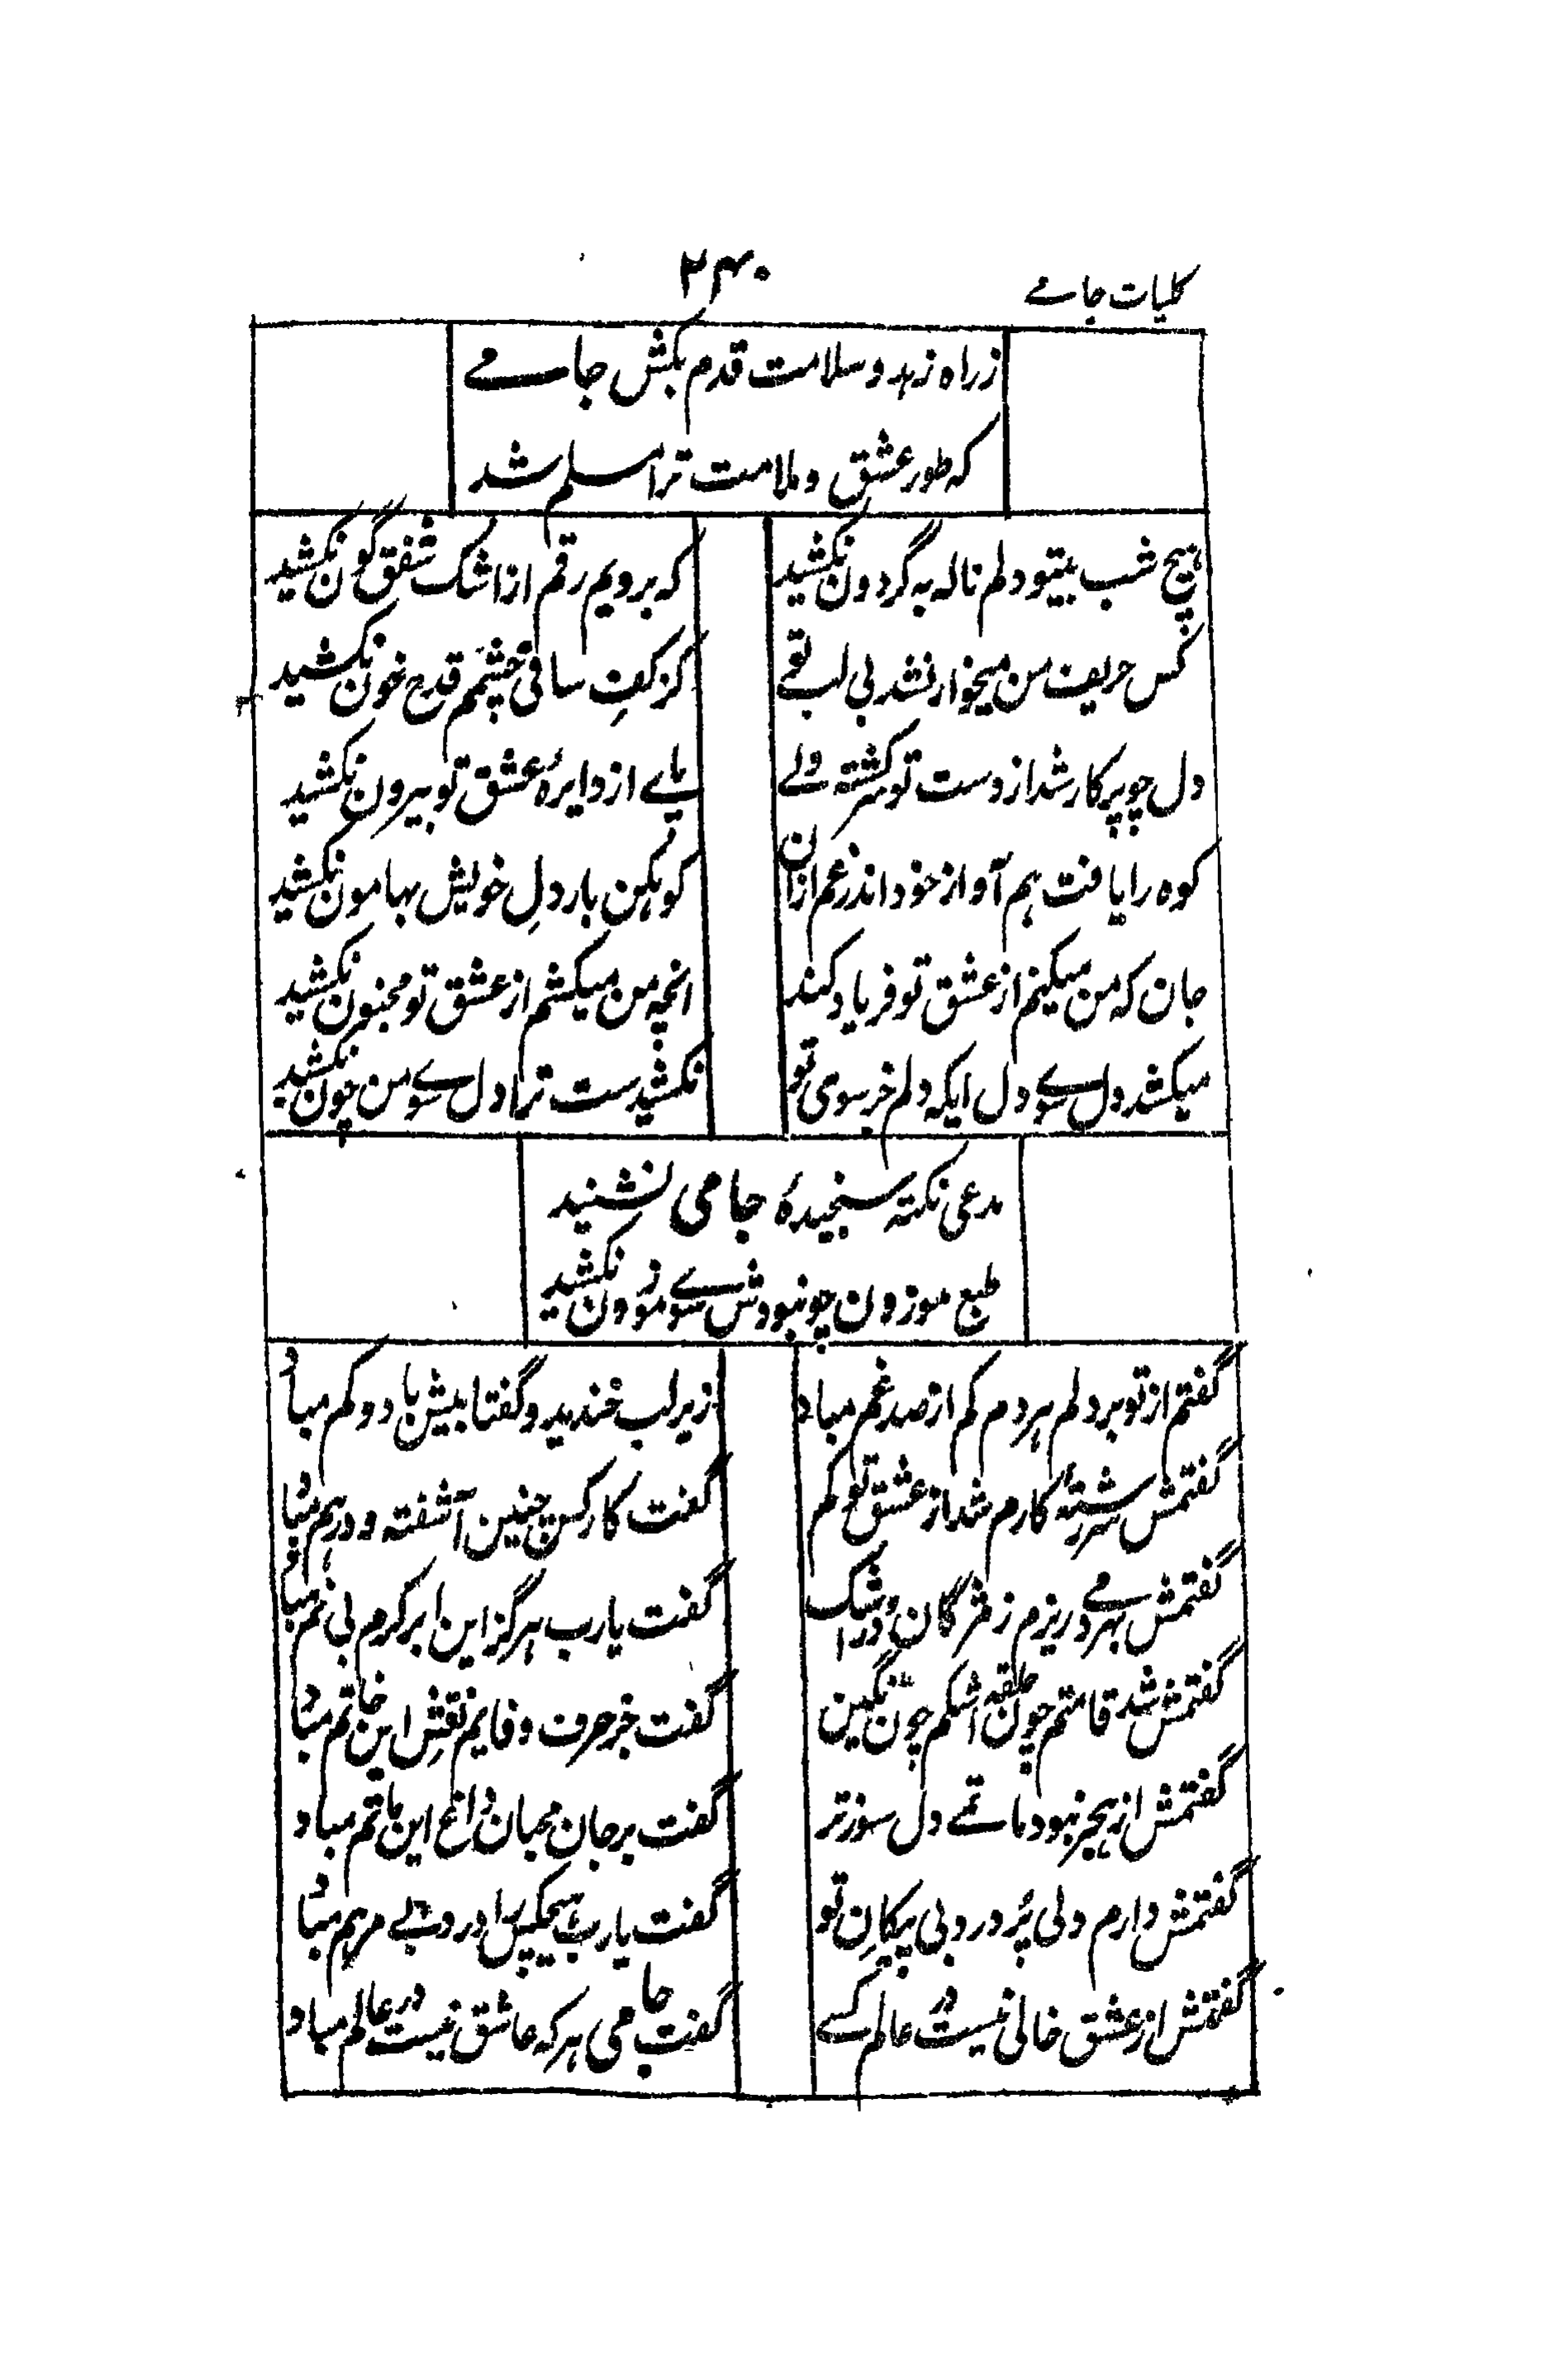 کلیات جامے
۲۴۰
زراہ زہد و سلامت قدم بکش جامے
کہ طور عشق و ملامت ترا مسلم شد
ہیچ شب بیتو دلم نالہ بہ گردون نکشید
کہ برویم رقم از اشک شفق گون نکشید
کس حریف من میخوار نشد بی لب تو
کز کفِ ساقی چشمم قدح خون نکشید
دل چو پرکار شد از دست تو سرگشتہ ولے
پاے از دایرۂ عشق تو بیرون نکشید
کوہ را یافت ہم آواز خود اندر غم ازان
کوہکن بار دلِ خویش بہامون نکشید
جان کہ من میکنم از عشق تو فریاد کند
انچہ من میکشم از عشق تو مجنون نکشید
میکشد دل سوے دل ایکہ دلم جز سوی تو
نکشیدست ترا دل سوے من چون نکشید
مدعی نکتہ سنجیدۂ جامی نشنید
طبع موزون چو نبودش سوے موزون نکشید
گفتم از تو بر دلم ہردم کم از صد غم مباد
زیر لب خندید و گفتا بیش باد و کم مباد
گفتمش سررشتۂ کارم شد از عشق تو گم
گفت کار کس چنین آشفتہ و درہم مباد
گفتمش بہر تو مے ریزم ز مژگان در اشک
گفت یارب ہرگز این ابر کرم بی نم مباد
گفتمش شد قامتم چون حلقہ اشکم چون نگین
گفت جز حرف وفایم نقش این خاتم مباد
گفتمش از ہجر نبود ماتمے دل سوزتر
گفت بر جان محبان داغ این ماتم مباد
گفتمش دارم دلی پُر درد بی پیکانِ تو
گفت یارب ہیچکس را درد بے مرہم مباد
گفتمش از عشق خالی نیست در عالم کسے
گفت جامی ہر کہ عاشق نیست در عالم مباد